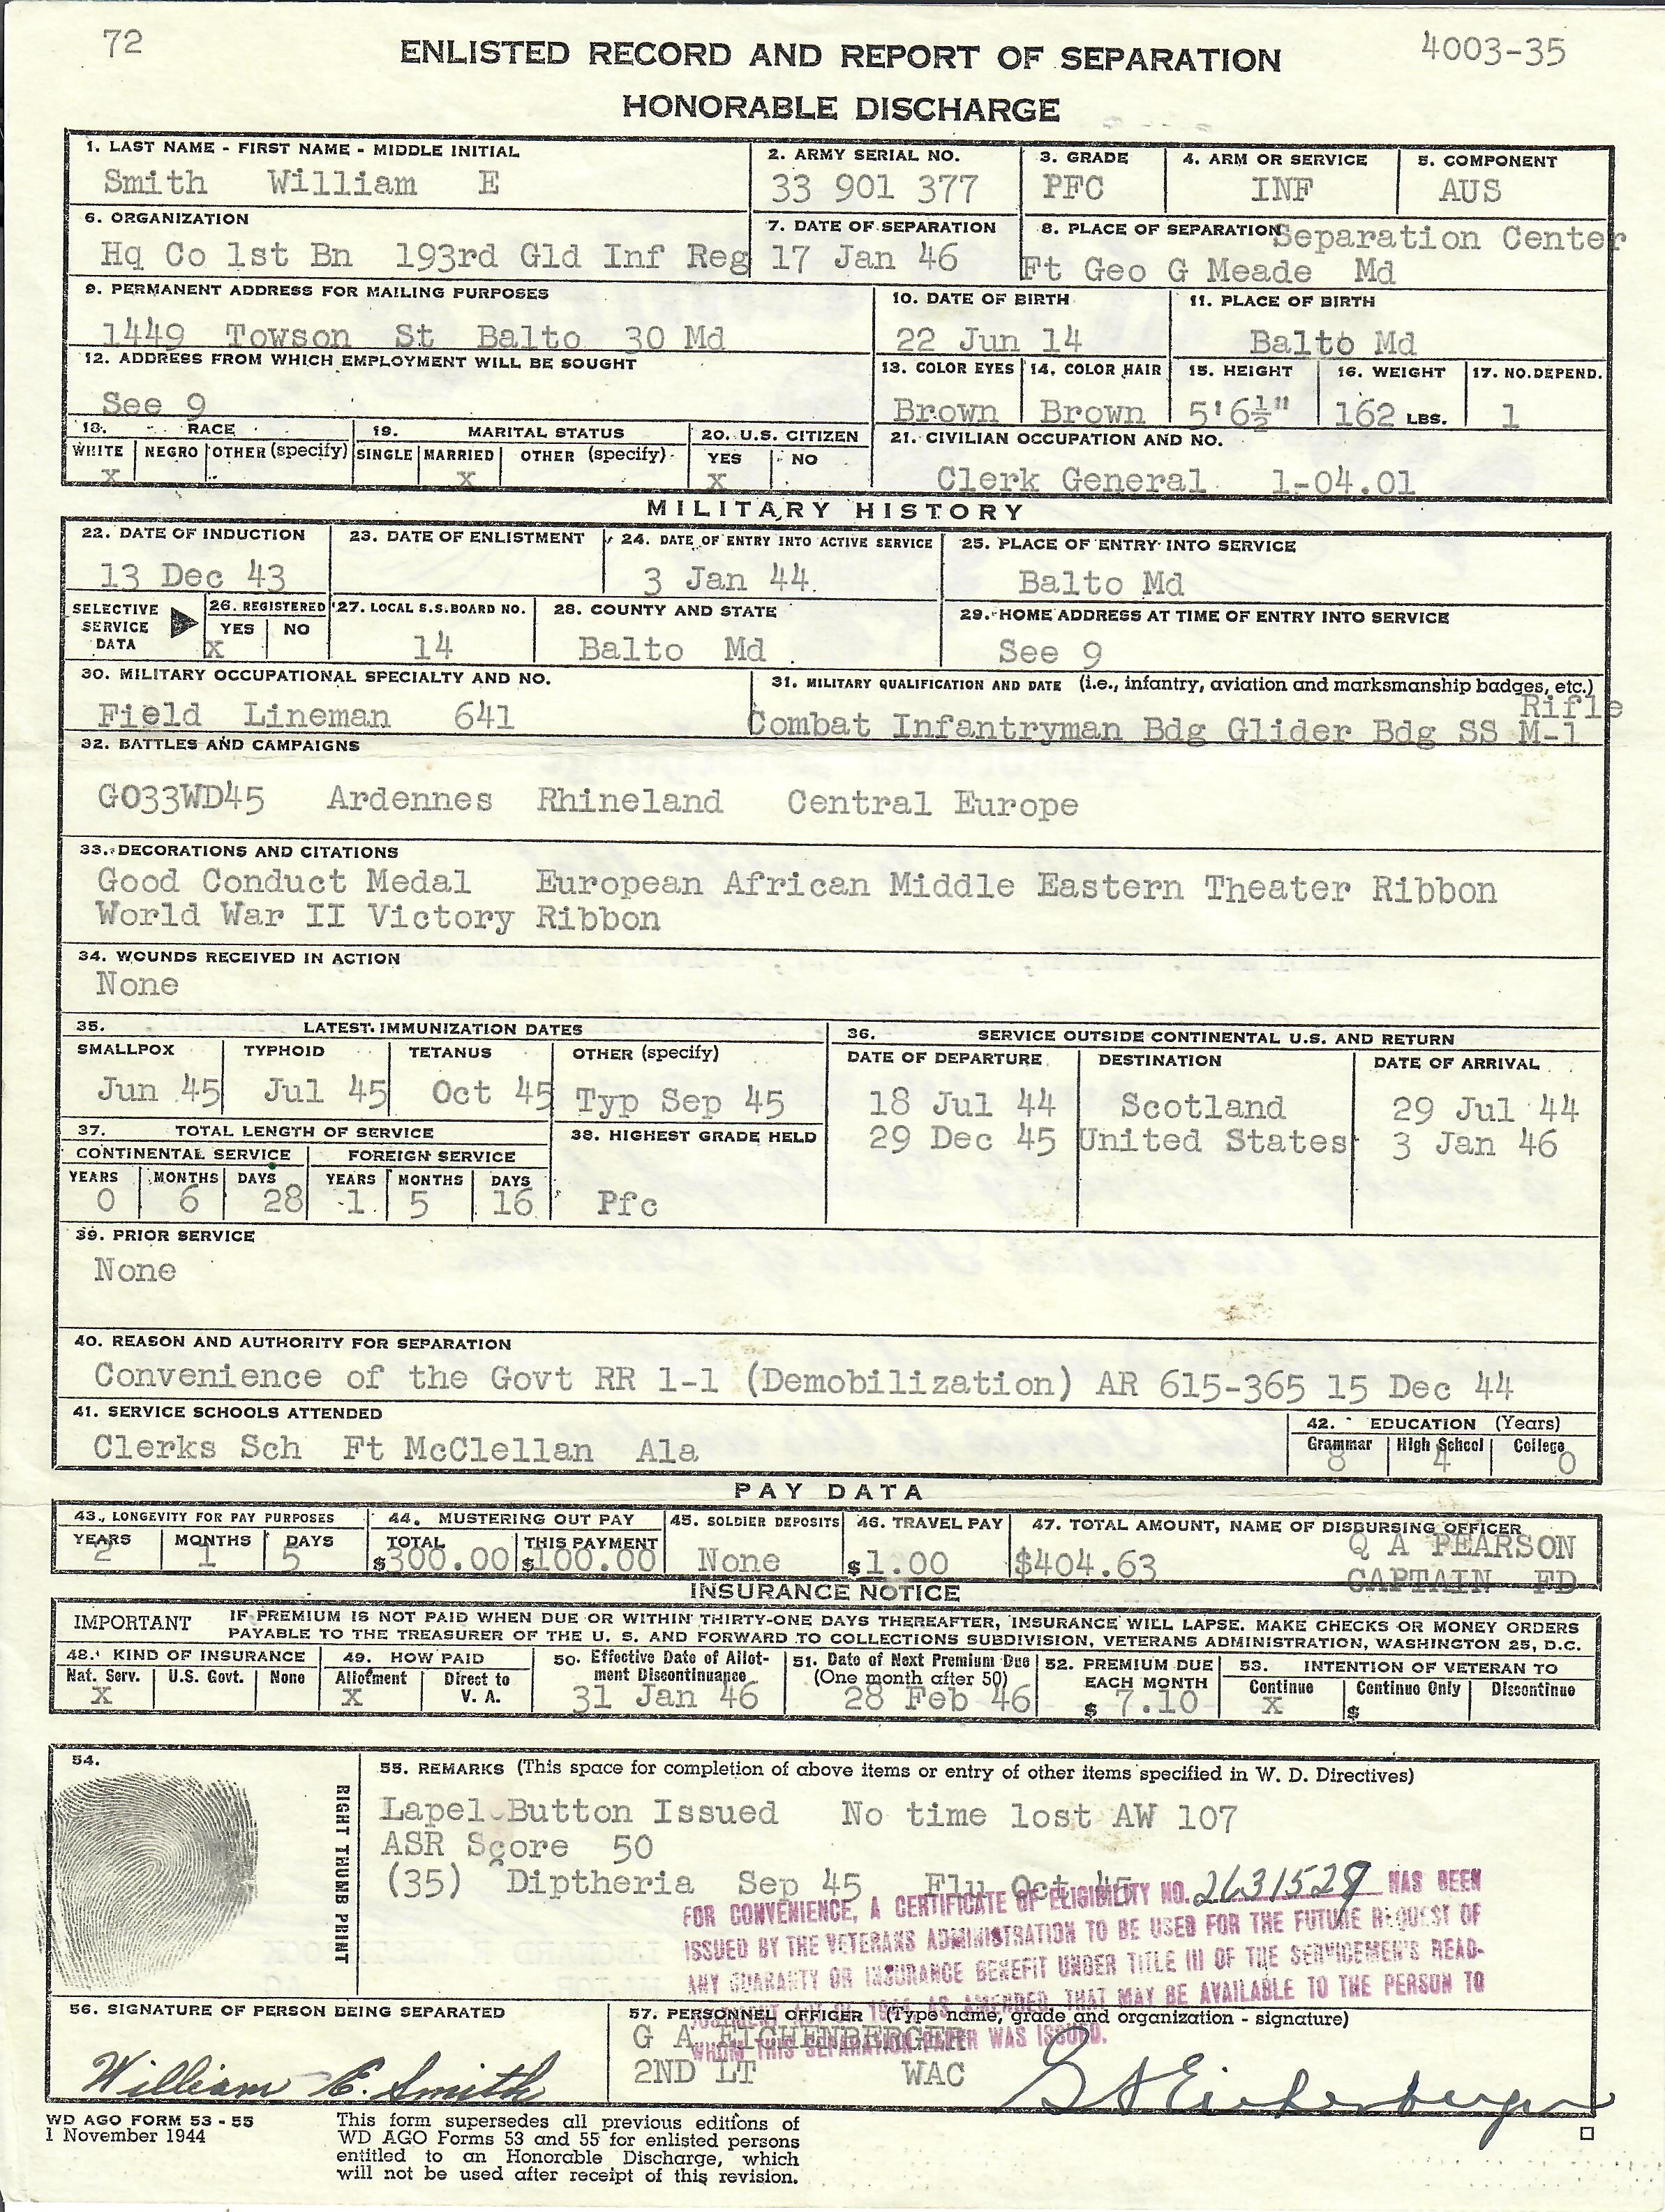 72
4003-35
ENLISTED RECORD AND REPORT OF SEPARATION
HONORABLE DISCHARGE
1. LAST NAME - FIRST NAME - MIDDLE INITIAL
Smith William E
2. ARMY SERIAL NO.
33 901 377
3. GRADE
PFC
4. ARM OR SERVICE
INF
5. COMPONENT
AUS
6. ORGANIZATION
Hq Co 1st Bn 193rd Gld Inf Reg
7. DATE OF SEPARATION
17 Jan 46
8. PLACE OF SEPARATION Separation Center
Ft Geo G Meade Md
9. PERMANENT ADDRESS FOR MAILING PURPOSES
1449 Towson St Balto 30 Md
10. DATE OF BIRTH
22 Jun 14
11. PLACE OF BIRTH
Balto Md
12. ADDRESS FROM WHICH EMPLOYMENT WILL BE SOUGHT
See 9
13. COLOR EYES
Brown
14. COLOR HAIR
Brown
15. HEIGHT
5'6½"
16. WEIGHT
162 LBS.
17. NO. DEPEND.
1
18. RACE
WHITE NEGRO OTHER (specify)
x
19. MARITAL STATUS
SINGLE MARRIED OTHER (specify)
x
20. U.S. CITIZEN
YES NO
x
21. CIVILIAN OCCUPATION AND NO.
Clerk General 1-04.01
MILITARY HISTORY
22. DATE OF INDUCTION
13 Dec 43
23. DATE OF ENLISTMENT
24. DATE OF ENTRY INTO ACTIVE SERVICE
3 Jan 44
25. PLACE OF ENTRY INTO SERVICE
Balto Md
SELECTIVE
SERVICE
DATA
26. REGISTERED
YES NO
x
27. LOCAL S.S. BOARD NO.
14
28. COUNTY AND STATE
Balto Md
29. HOME ADDRESS AT TIME OF ENTRY INTO SERVICE
See 9
30. MILITARY OCCUPATIONAL SPECIALTY AND NO.
Field Lineman 641
31. MILITARY QUALIFICATION AND DATE (i.e., infantry, aviation and marksmanship badges, etc.)
Rifle
Combat Infantryman Bdg Glider Bdg SS M-1
32. BATTLES AND CAMPAIGNS
GO33WD45 Ardennes Rhineland Central Europe
33. DECORATIONS AND CITATIONS
Good Conduct Medal European African Middle Eastern Theater Ribbon
World War II Victory Ribbon
34. WOUNDS RECEIVED IN ACTION
None
35. LATEST IMMUNIZATION DATES
SMALLPOX TYPHOID TETANUS OTHER (specify)
Jun 45 Jul 45 Oct 45 Typ Sep 45
36. SERVICE OUTSIDE CONTINENTAL U.S. AND RETURN
DATE OF DEPARTURE DESTINATION DATE OF ARRIVAL
18 Jul 44 Scotland 29 Jul 44
29 Dec 45 United States 3 Jan 46
37. TOTAL LENGTH OF SERVICE
CONTINENTAL SERVICE FOREIGN SERVICE
YEARS MONTHS DAYS YEARS MONTHS DAYS
0 6 28 1 5 16
38. HIGHEST GRADE HELD
Pfc
39. PRIOR SERVICE
None
40. REASON AND AUTHORITY FOR SEPARATION
Convenience of the Govt RR 1-1 (Demobilization) AR 615-365 15 Dec 44
41. SERVICE SCHOOLS ATTENDED
Clerks Sch Ft McClellan Ala
42. EDUCATION (Years)
Grammar High School College
8 4 0
PAY DATA
43. LONGEVITY FOR PAY PURPOSES
YEARS MONTHS DAYS
2 1 5
44. MUSTERING OUT PAY
TOTAL THIS PAYMENT
$300.00 $100.00
45. SOLDIER DEPOSITS
None
46. TRAVEL PAY
$1.00
47. TOTAL AMOUNT, NAME OF DISBURSING OFFICER
$404.63
Q A PEARSON
CAPTAIN FD
INSURANCE NOTICE
IMPORTANT
IF PREMIUM IS NOT PAID WHEN DUE OR WITHIN THIRTY-ONE DAYS THEREAFTER, INSURANCE WILL LAPSE. MAKE CHECKS OR MONEY ORDERS
PAYABLE TO THE TREASURER OF THE U. S. AND FORWARD TO COLLECTIONS SUBDIVISION, VETERANS ADMINISTRATION, WASHINGTON 25, D.C.
48. KIND OF INSURANCE
Nat. Serv. U.S. Govt. None
x
49. HOW PAID
Allotment Direct to
V. A.
x
50. Effective Date of Allot-
ment Discontinuance
31 Jan 46
51. Date of Next Premium Due
(One month after 50)
28 Feb 46
52. PREMIUM DUE
EACH MONTH
$ 7.10
53. INTENTION OF VETERAN TO
Continue Continue Only Discontinue
x $
54.
RIGHT THUMB PRINT
55. REMARKS (This space for completion of above items or entry of other items specified in W. D. Directives)
Lapel Button Issued No time lost AW 107
ASR Score 50
(35) Diptheria Sep 45 Flu Oct 45
FOR CONVENIENCE, A CERTIFICATE OF ELIGIBILITY NO. 2631529 HAS BEEN
ISSUED BY THE VETERANS ADMINISTRATION TO BE USED FOR THE FUTURE REQUEST OF
ANY GUARANTY OR INSURANCE BENEFIT UNDER TITLE III OF THE SERVICEMEN'S READ-
JUSTMENT ACT OF 1944, AS AMENDED, THAT MAY BE AVAILABLE TO THE PERSON TO
WHOM THIS SEPARATION PAPER WAS ISSUED.
56. SIGNATURE OF PERSON BEING SEPARATED
William E. Smith
57. PERSONNEL OFFICER (Type name, grade and organization - signature)
G A EICHENBERGER
2ND LT WAC
G A Eichenberger
WD AGO FORM 53 - 55
1 November 1944
This form supersedes all previous editions of
WD AGO Forms 53 and 55 for enlisted persons
entitled to an Honorable Discharge, which
will not be used after receipt of this revision.